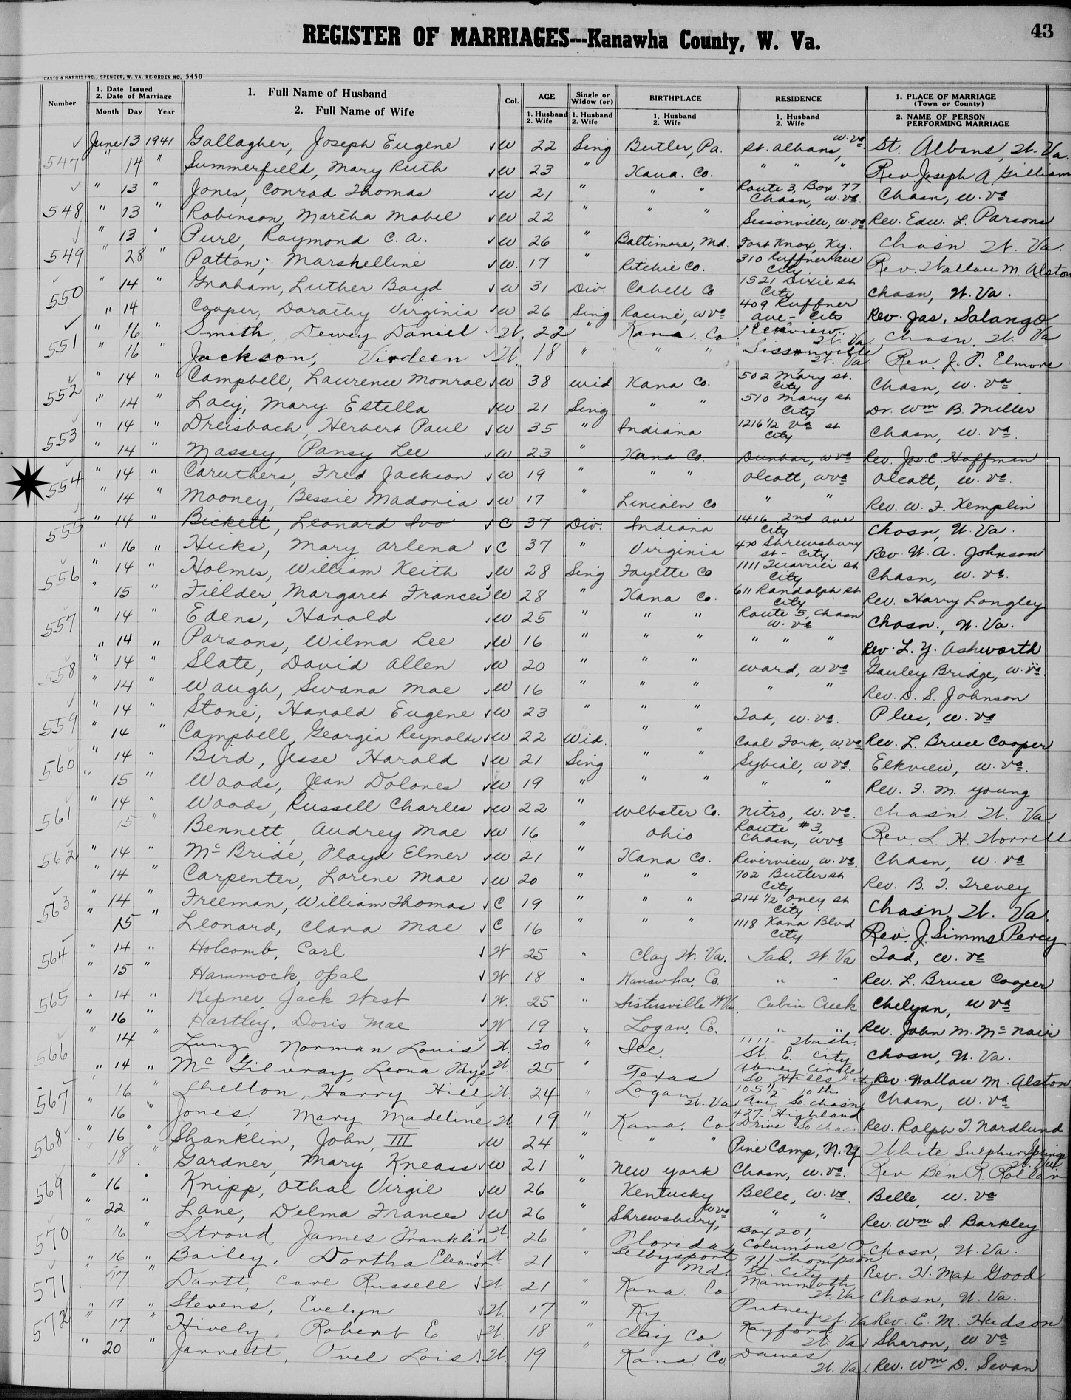 REGISTER OF MARRIAGES---Kanawha County, W. Va.
43
SPENCER, W. VA. RE-ORDER NO. 5450
Number
1. Date Issued
2. Date of Marriage
Month Day Year
1. Full Name of Husband
2. Full Name of Wife
Col.
AGE
1. Husband
2. Wife
Single or
Widow (er)
1. Husband
2. Wife
BIRTHPLACE
1. Husband
2. Wife
RESIDENCE
1. Husband
2. Wife
1. PLACE OF MARRIAGE
(Town or County)
2. NAME OF PERSON
PERFORMING MARRIAGE
547 June 13 1941 Gallagher, Joseph Eugene W 22 Sing Butler, Pa. St. Albans, W. Va St. Albans, W. Va.
" 14 " Summerfield, Mary Ruth W 23 " Kana. Co. " " " Rev. Joseph A. Gilliam
548 " 13 " Jones, Conrad Thomas W 21 " " " Route 3, Box 77 Chasn, W. Va Chasn, W. Va
" 13 " Robinson, Martha Mabel W 22 " " " Sissonville, W. Va Rev. Edw. L. Parsons
549 " 13 " Pure, Raymond C. A. W 26 " Baltimore, Md. Fort Knox, Ky. Chasn W. Va.
" 28 " Patton, Marshelline W 17 " Ritchie Co. 310 Ruffner Ave City Rev. Wallau M. Alston
550 " 14 " Graham, Luther Boyd W 31 Div Cabell Co 1521 Dixie St City Chasn, W. Va.
" 14 Cooper, Dorathy Virginia W 26 Sing W Va 409 Ruffner Ave - City Rev. Jas. Salango
551 " 16 " Smith, Dewey Daniel W. 22 " Kana. Co. W. Va. Chasn, W. Va
" 16 " Jackson, Virdeen W. 18 " " " Sissonville W. Va. Rev. J. P. Elmore
552 " 14 " Campbell, Laurence Monroe W 38 Wid Kana Co. 502 Mary St. City Chasn, W. Va
" 14 " Lacy, Mary Estella W 21 Sing " " 510 Mary St City Dr. Wm B. Miller
553 " 14 " Dreisbach, Herbert Paul W 35 " Indiana 1216 1/2 Va St City Chasn, W. Va.
" 14 " Massey, Pansy Lee W 23 " Kana Co. Dunbar, W Va Rev. Jos. C. Hoffman
554 " 14 " Caruthers, Fred Jackson W 19 " " " Olcott, W Va Olcott, W. Va.
" 14 " Mooney, Bessie Madoria W 17 " Lincoln Co " " Rev. W. F. Kemplin
555 " 14 " Bickett, Leonard Ivo C 37 Div. Indiana 1416 2nd Ave City Chasn, W. Va.
" 16 " Hicks, Mary Arlena C 37 " Virginia Shrewsbury St - City Rev. W. A. Johnson
556 " 14 " Holmes, William Keith W 28 Sing Fayette Co 1111 Quarrier St City Chasn, W. Va.
" 15 " Fielder, Margaret Frances W 28 " Kana Co. 611 Randolph St City Rev. Harry Longley
557 " 14 " Edens, Harold W 25 " " " Route 5, Chasn W. Va Chasn, W. Va.
" 14 " Parsons, Wilma Lee W 16 " " " " " " Rev. L. Y. Ashworth
558 " 14 " Slate, David Allen W 20 " " " Ward, W Va Gauley Bridge, W. Va
" 14 " Waugh, Swana Mae W 16 " " " " " Rev. D. S. Johnson
559 " 14 " Stone, Harold Eugene W 23 " " " Tad, W. Va. Plus, W. Va
" 14 " Campbell, Georgia Reynolds W 22 Wid. " " Coal Fork, W Va Rev. L. Bruce Cooper
560 " 14 " Bird, Jesse Harold W 21 Sing " " Sybial, W Va. Elkview, W. Va.
" 15 " Woods, Jean Dolores W 19 " " " " " Rev. F. M. Young
561 " 14 " Woods, Russell Charles W 22 " Webster Co. Nitro, W. Va. Chasn W. Va
15 " Bennett, Audrey Mae W 16 " Ohio Route #3, Chasn, W Va Rev. L. H.
562 " 14 " McBride, Floyd Elmer W 21 " Kana Co. Riverview, W. Va. Chasn, W. Va
" 14 " Carpenter, Lorene Mae W 20 " " " 702 Butler St City Rev. B. F. Trevey
563 " 14 " Freeman, William Thomas C 19 " " " 214 1/2 Oney St City Chasn, W. Va.
" 15 " Leonard, Clara Mae C 16 " " " 1118 Kana Blvd City Rev. J. Simms Parcy
564 " 14 " Holcomb, Carl W 25 " Clay W. Va. Tad, W. Va Tad, W. Va
" 15 " Hammock, Opal W 18 " Kanawha, Co. " " Rev. L. Bruce Cooper
565 " 14 " Kepner, Jack West W. 25 " Sistersville W. Va. Cabin Creek Chelyan, W Va
" 16 " Hartley, Doris Mae W 19 " Logan, Co. " " Rev. John M. McNair
566 " 14 Norman Louis W 30 " 1111 St. E. City Chasn, W. Va.
" 14 " McGilvray Leona Faye W 25 " Texas Rev. Wallau M. Alston
567 " 16 " Shelton, Harry Hill W 24 " Logan W. Va. Ave So Chasn Chasn, W. Va
" 16 " Jones, Mary Madeline W 19 " Kana. Co. 427 Highland Drive So Chasn Rev. Ralph F. Nordlund
568 " 16 " Shanklin, John, III W 24 " " " Pine Camp, N. Y. White Sulphur Springs W. Va.
" 18 " Gardner, Mary Kneass W 21 " New York Chasn, W. Va. Rev. Ben R.
569 " 16 " Knipp, Othal Virgil W 26 " Kentucky Belle, W. Va. Belle, W. Va
" 22 " Lane, Delma Frances W 26 " Shrewsbury, W Va " " Rev. Wm I. Barkley
570 " 16 " Stroud, James Franklin W 26 " Florida Box 201, Columbus O. Chasn, W. Va.
" 16 " Bailey, Dortha Eleanor W 21 " Md. 911 Thompson St. City Rev. H. Max Good
571 " 17 " Carl Russell W. 21 " Kana. Co Mammoth W. Va Chasn, W. Va.
" 17 " Stevens, Evelyn W. 17 " Ky Putney W. Va Rev. E. M. Hudson
572 " 17 " Hively, Robert E W 18 " Clay Co. Kayford W. Va Sharon, W Va
" 20 Jarrett, Lois W. 19 " Kana Co Dawes W. Va. Rev. Wm D. Swan